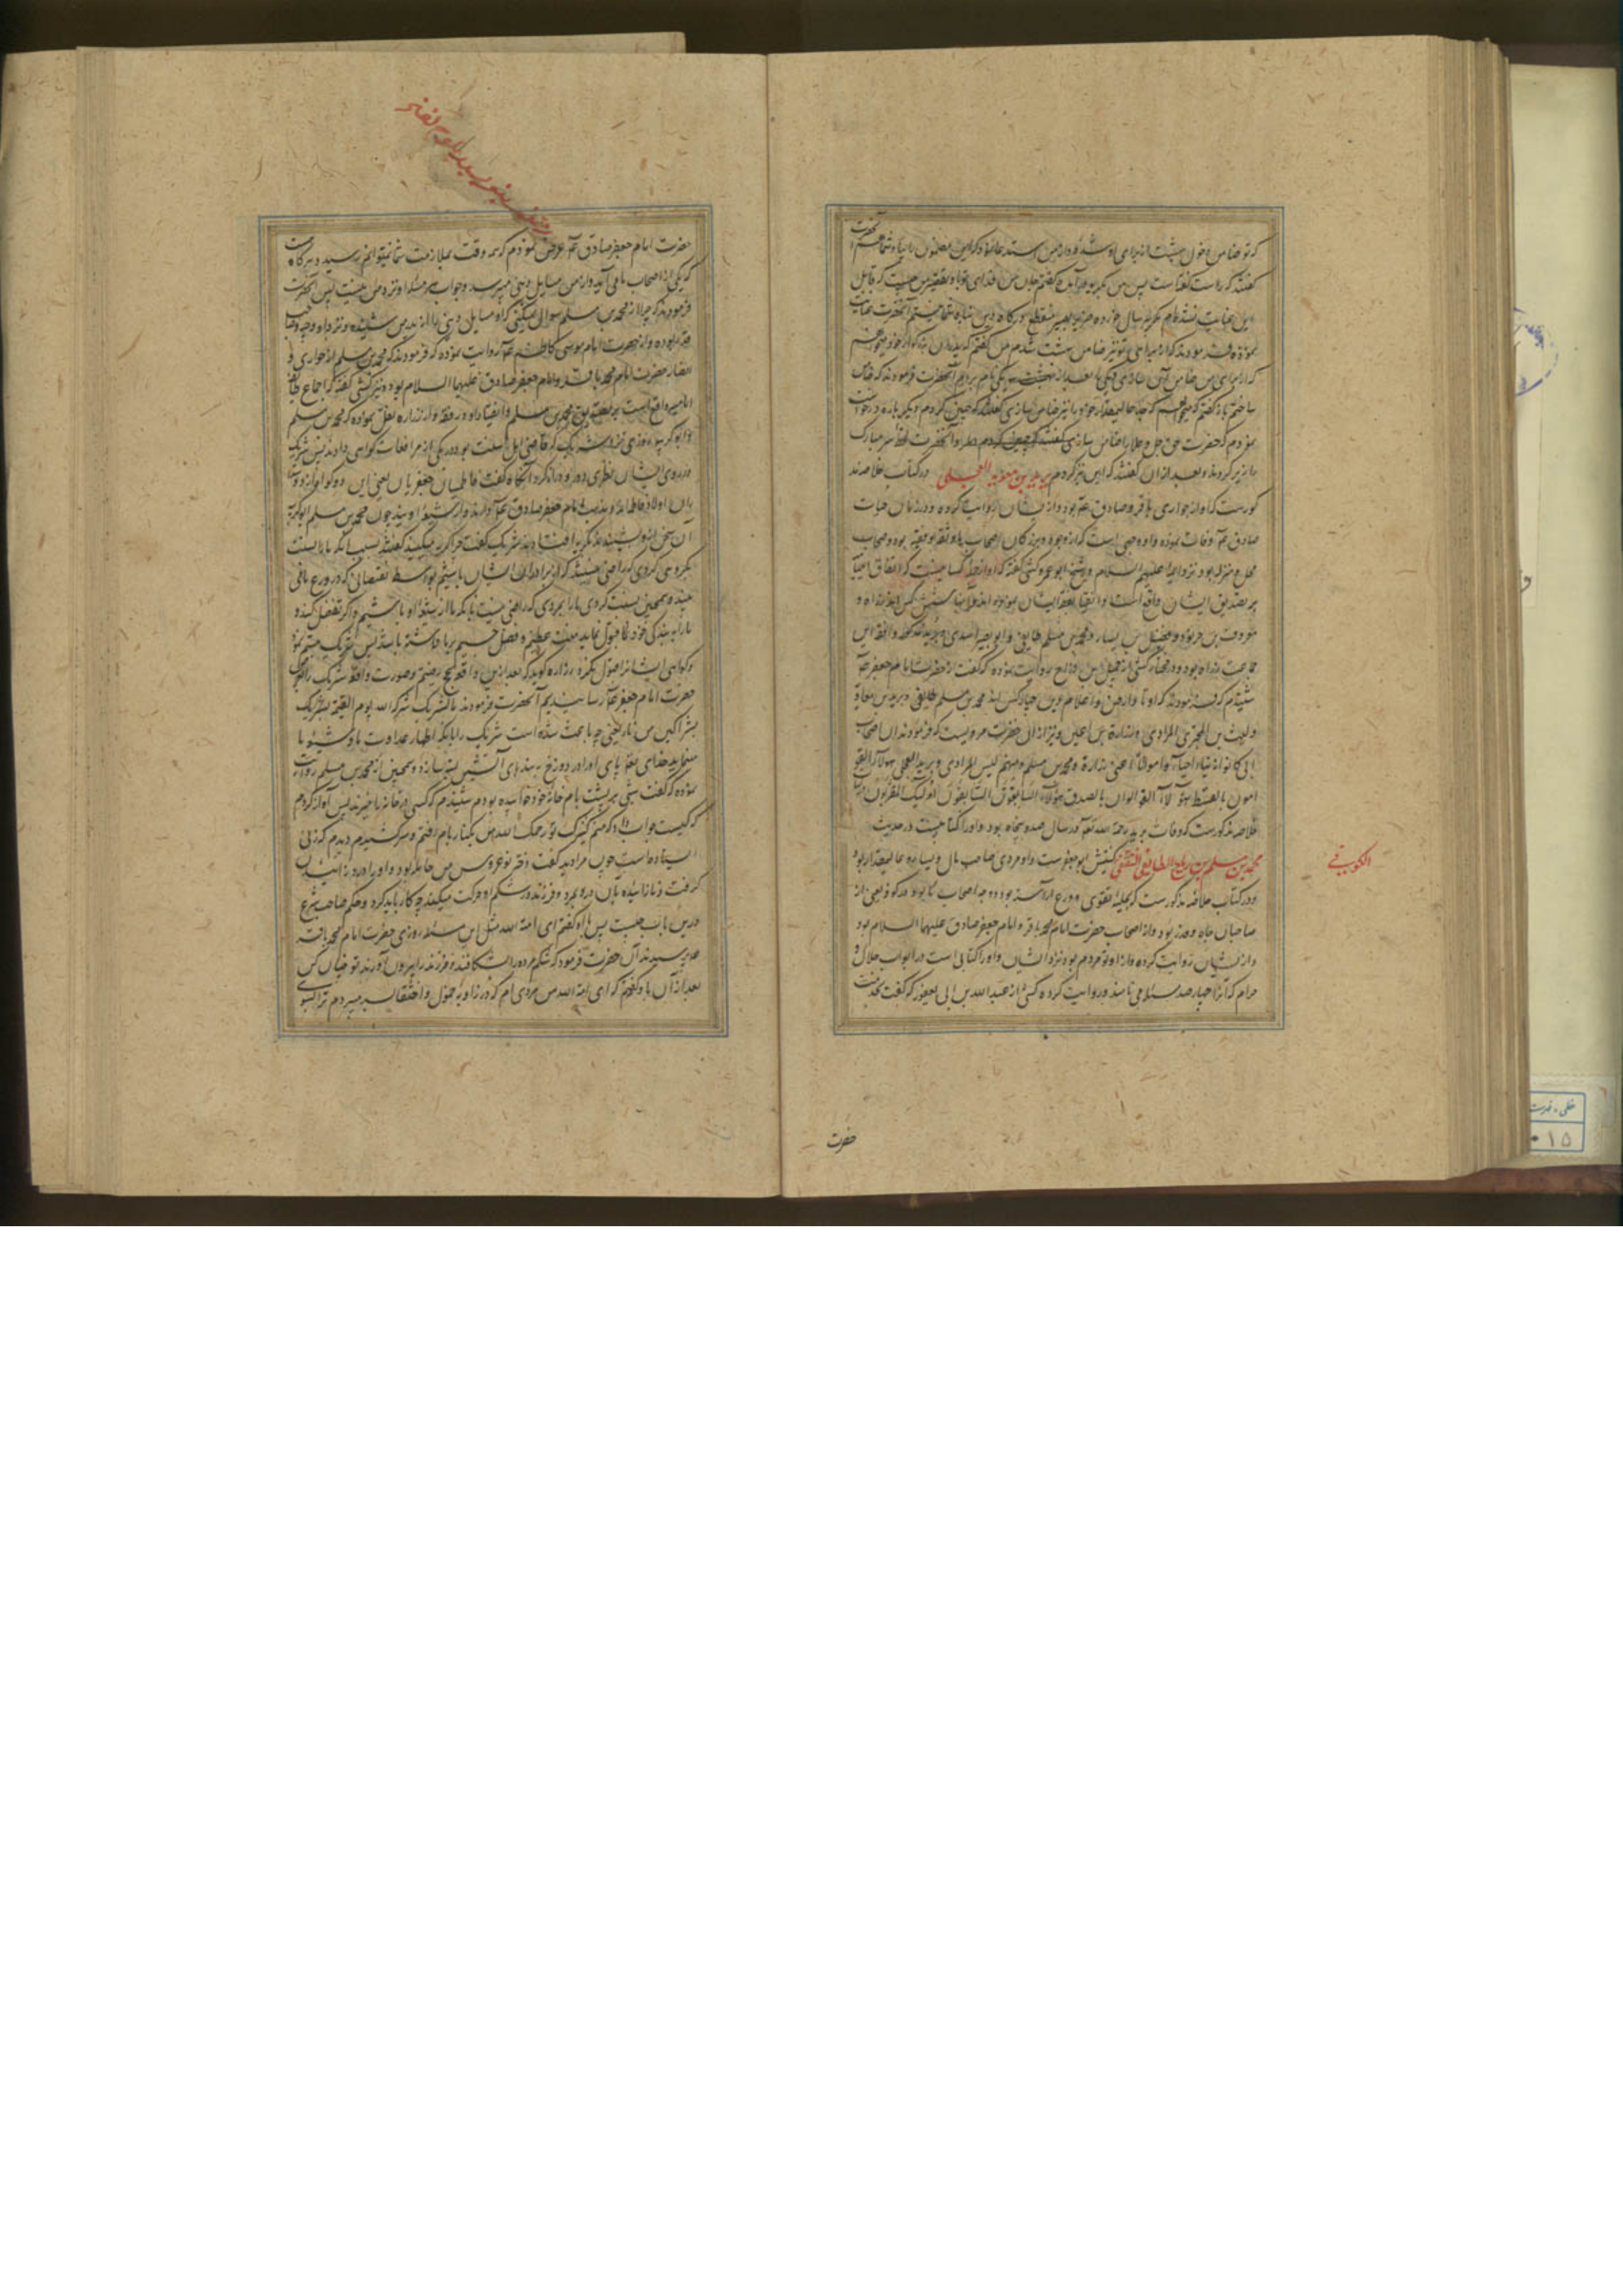 که تو ضامن دخول بهشت از برای او شده و از من استدعا
گفتند که راست گفته است پس من
این عنایت نشده ام مگر پیر سال خورده ضریر البصیر منقطع بدرگاه
نموده فرمودند که از برای تو نیز ضامن بهشت شدم من گفتم که پدران بزرگوار خود
که از برای من ضامن آن سازی و یکی یکی نام بردم آنحضرت فرمودند که ضامن
ساختم باز گفتم که میخواهم که جد عالیمقدار خود را نیز ضامن سازی گفتند که چنین کردم دیگر باره درخواست
نمودم که حضرت حق جل و علا را ضامن سازی آنحضرت لحظه سر مبارک
بزیر کردند و بعد از آن گفتند که این نیز کردم برید بن معویه العجلی در کتاب خلاصه مذ
کورست که او از حواری باقر و صادق عم بود و از ایشان روایت کرده و در زمان حیات
صادق عم وفات نموده و او وجهی است از وجوه و بزرگان اصحاب ما و ثقه و فقیه بود و صاحب
محل و منزله بود نزد ائمه علیهم السلام و شیخ ابو عمرو کشی گفته که او از جمله کسانیست که اتفاق
بر تصدیق ایشان واقع است و انقیاد بفقه ایشان نموده اند و ایشان شش کس اند زراره و
معروف بن خربوذ و فضیل بن یسار و محمد بن مسلم طایفی و ابو بصیر اسدی و برید مذکور و افقه این
جماعت زراره بود و در مختار کشی از جمیل بن دراج روایت نموده که گفت از حضرت امام جعفر عم
شنیدم که فرمودند که اوتاد ارض و اعلام دین چهار کس اند محمد بن مسلم طایفی و برید بن معاویة
و لیث بن البختری المرادی و زرارة بن اعین و نیز از آن حضرت مرویست که فرمودند ان اصحاب
ابی کانوا زینا احیاء و امواتا اعنی زرارة و محمد بن مسلم و منهم لیث المرادی و برید العجلی هؤلاء القو
امون بالقسط هؤلاء القوالون بالصدق هؤلاء السابقون السابقون اولئک المقربون
خلاصه مذکورست که وفات برید رحمة الله در سال صد و پنجاه بود و او را کتابیست در حدیث
محمد بن مسلم بن ریاح الطایفی الثقفی کنیتش ابو جعفرست و او مردی صاحب مال و یسار و عالیمقدار بود
الکوفی
و در کتاب خلاصه مذکورست که بحلیه تقوی و ورع آراسته بود و وجه اصحاب ما بود در کوفه یعنی از
صاحبان جاه و قدر بود و از اصحاب حضرت امام محمد باقر و امام جعفر صادق علیهما السلام بود
و از ایشان روایت کرده و از اوثق مردم بود نزد ایشان و او را کتابی است در ابواب حلال و
حرام که آنرا چهار صد مسئله می نامند و روایت کرده کشی از عبد الله بن ابی یعفور که گفت بخدمت
حضرت
حضرت امام جعفر صادق عم عرض نمودم که همه وقت بملازمت شما نمیتوانم رسید و هر گاه
که یکی از اصحاب ما می آید و از من مسایل دینی میپرسد و جواب هر مسئله او نزد من نیست پس آنحضرت
فرمودند که چرا از محمد بن مسلم سوال نمیکنی که او مسایل دینی را از پدر من شنیده و نزد او وجیه و صاحب
قدر بوده و از حضرت امام موسی کاظم عم روایت نموده که فرمودند که محمد بن مسلم از حواری و
انصار حضرت امام محمد باقر و امام جعفر صادق علیهما السلام بود و نیز کشی گفته که اجماع طایفه
امامیه واقع است بر تصدیق محمد بن مسلم و انقیاد او در فقه و از زراره نقل نموده که محمد بن مسلم
و ابو کریبه روزی نزد شریک که قاضی اهل سنت بود در یکی از مرافعات گواهی دادند پس شریک
در روی ایشان نظری دور و دراز کرد آنگاه گفت فاطمیان جعفریان یعنی این دو گواه
آن سخن را شنیدند بگریه افتادند شریک گفت چرا گریه میکنید گفتند بسبب آنکه ما را نسبت
بگروهی کردی که راضی نیستند که از برادران ایشان باشیم بواسطه نقصانی که در ورع مافی
بینند و همچنین نسبت کردی ما را بمردی که راضی نیست بآنکه ما از شیعه او باشیم و اگر تفضل کند و
ما را به بندگی خود قبول نماید منت عظیم و فضل جسیم بر ما داشته باشد پس شریک تبسم نمود
و گواهی ایشانرا قبول نکرد زراره گوید که بعد ازین واقعه بحج رفتیم و صورت واقعه شریک را
حضرت امام جعفر عم رسانیدیم آنحضرت فرمودند ما لشریک شرکه الله یوم القیمة بشریک
بشراکین من نار یعنی چه باعث شده است شریک را بآنکه اظهار عداوت ما و شیعه ما
مینماید خدای پای او را در دوزخ به بندهای آتشین بسته سازد و همچنین از محمد بن مسلم روایت
نموده که گفت شبی بر پشت بام خانه خود خوابیده بودم شنیدم که کسی در خانه را میزند پس آواز کردم
که کیست جواب داد که منم کنیزک تو رحمک الله من بکنار بام رفتم و سر کشیدم دیدم که زنی
ایستاده است چون مرا دید گفت دختر نو عروس من حامله بود و او را درد زائیدن
گرفت و نازائیده بآن درد بمرد و فرزند در شکم او حرکت میکند چه کار باید کرد و حکم صاحب شرع
درین باب چیست پس باو گفتم ای امة الله مثل این مسئله روزی حضرت امام محمد باقر
عم پرسیدند آن حضرت فرمود که شکم مرده را بشکافند و فرزند را بیرون آورند تو چنان کن
بعد از آن باو گفتم که ای امة الله من مردی ام که در زاویه خمول و اختفا بسر میبردم ترا بسوی